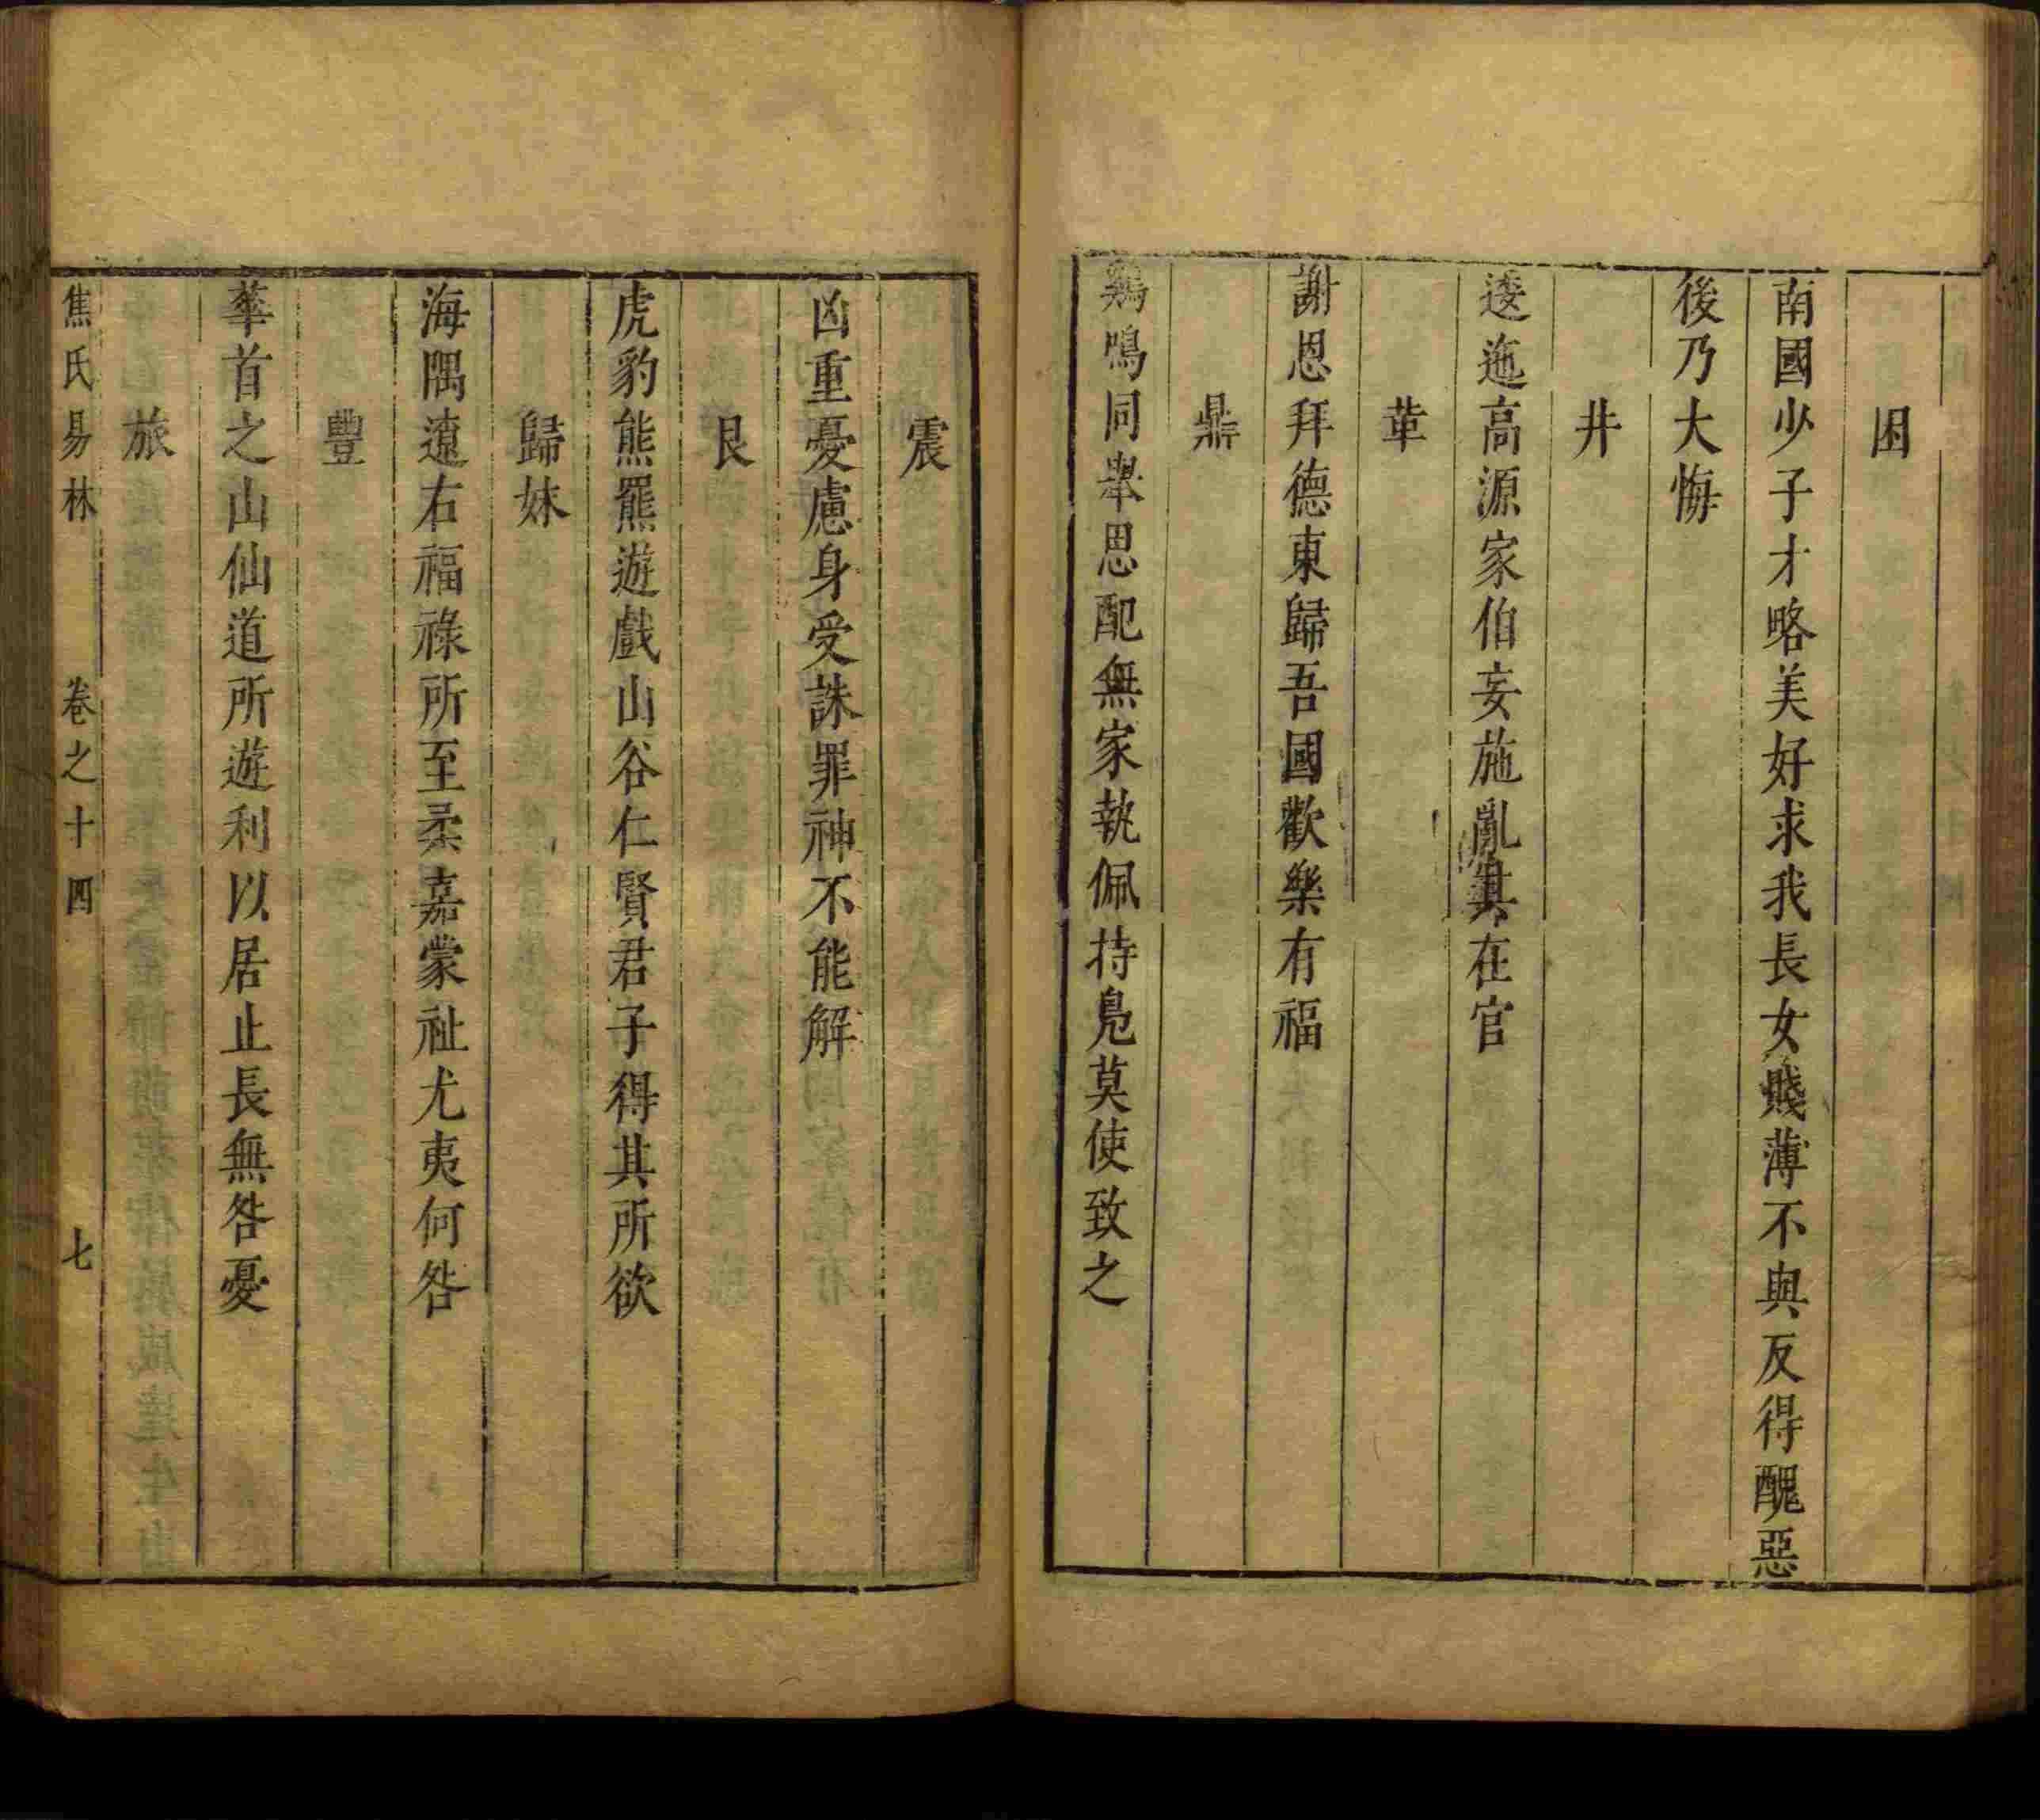 困
南國少子才略美好求我長女賤薄不與反得醜惡
後乃大悔
井
逶迤高源家伯妄施亂其在官
革
謝恩拜德東歸吾國歡樂有福
鼎
鷄鳴同舉思配無家執佩持鳧莫使致之
震
凶重憂慮身受誅罪神不能解
艮
虎豹熊羆遊戲山谷仁賢君子得其所欲
歸妹
海隅遼右福祿所至柔嘉蒙祉尤夷何咎
豐
華首之山仙道所遊利以居止長無咎憂
旅
焦氏易林 卷之十四 七